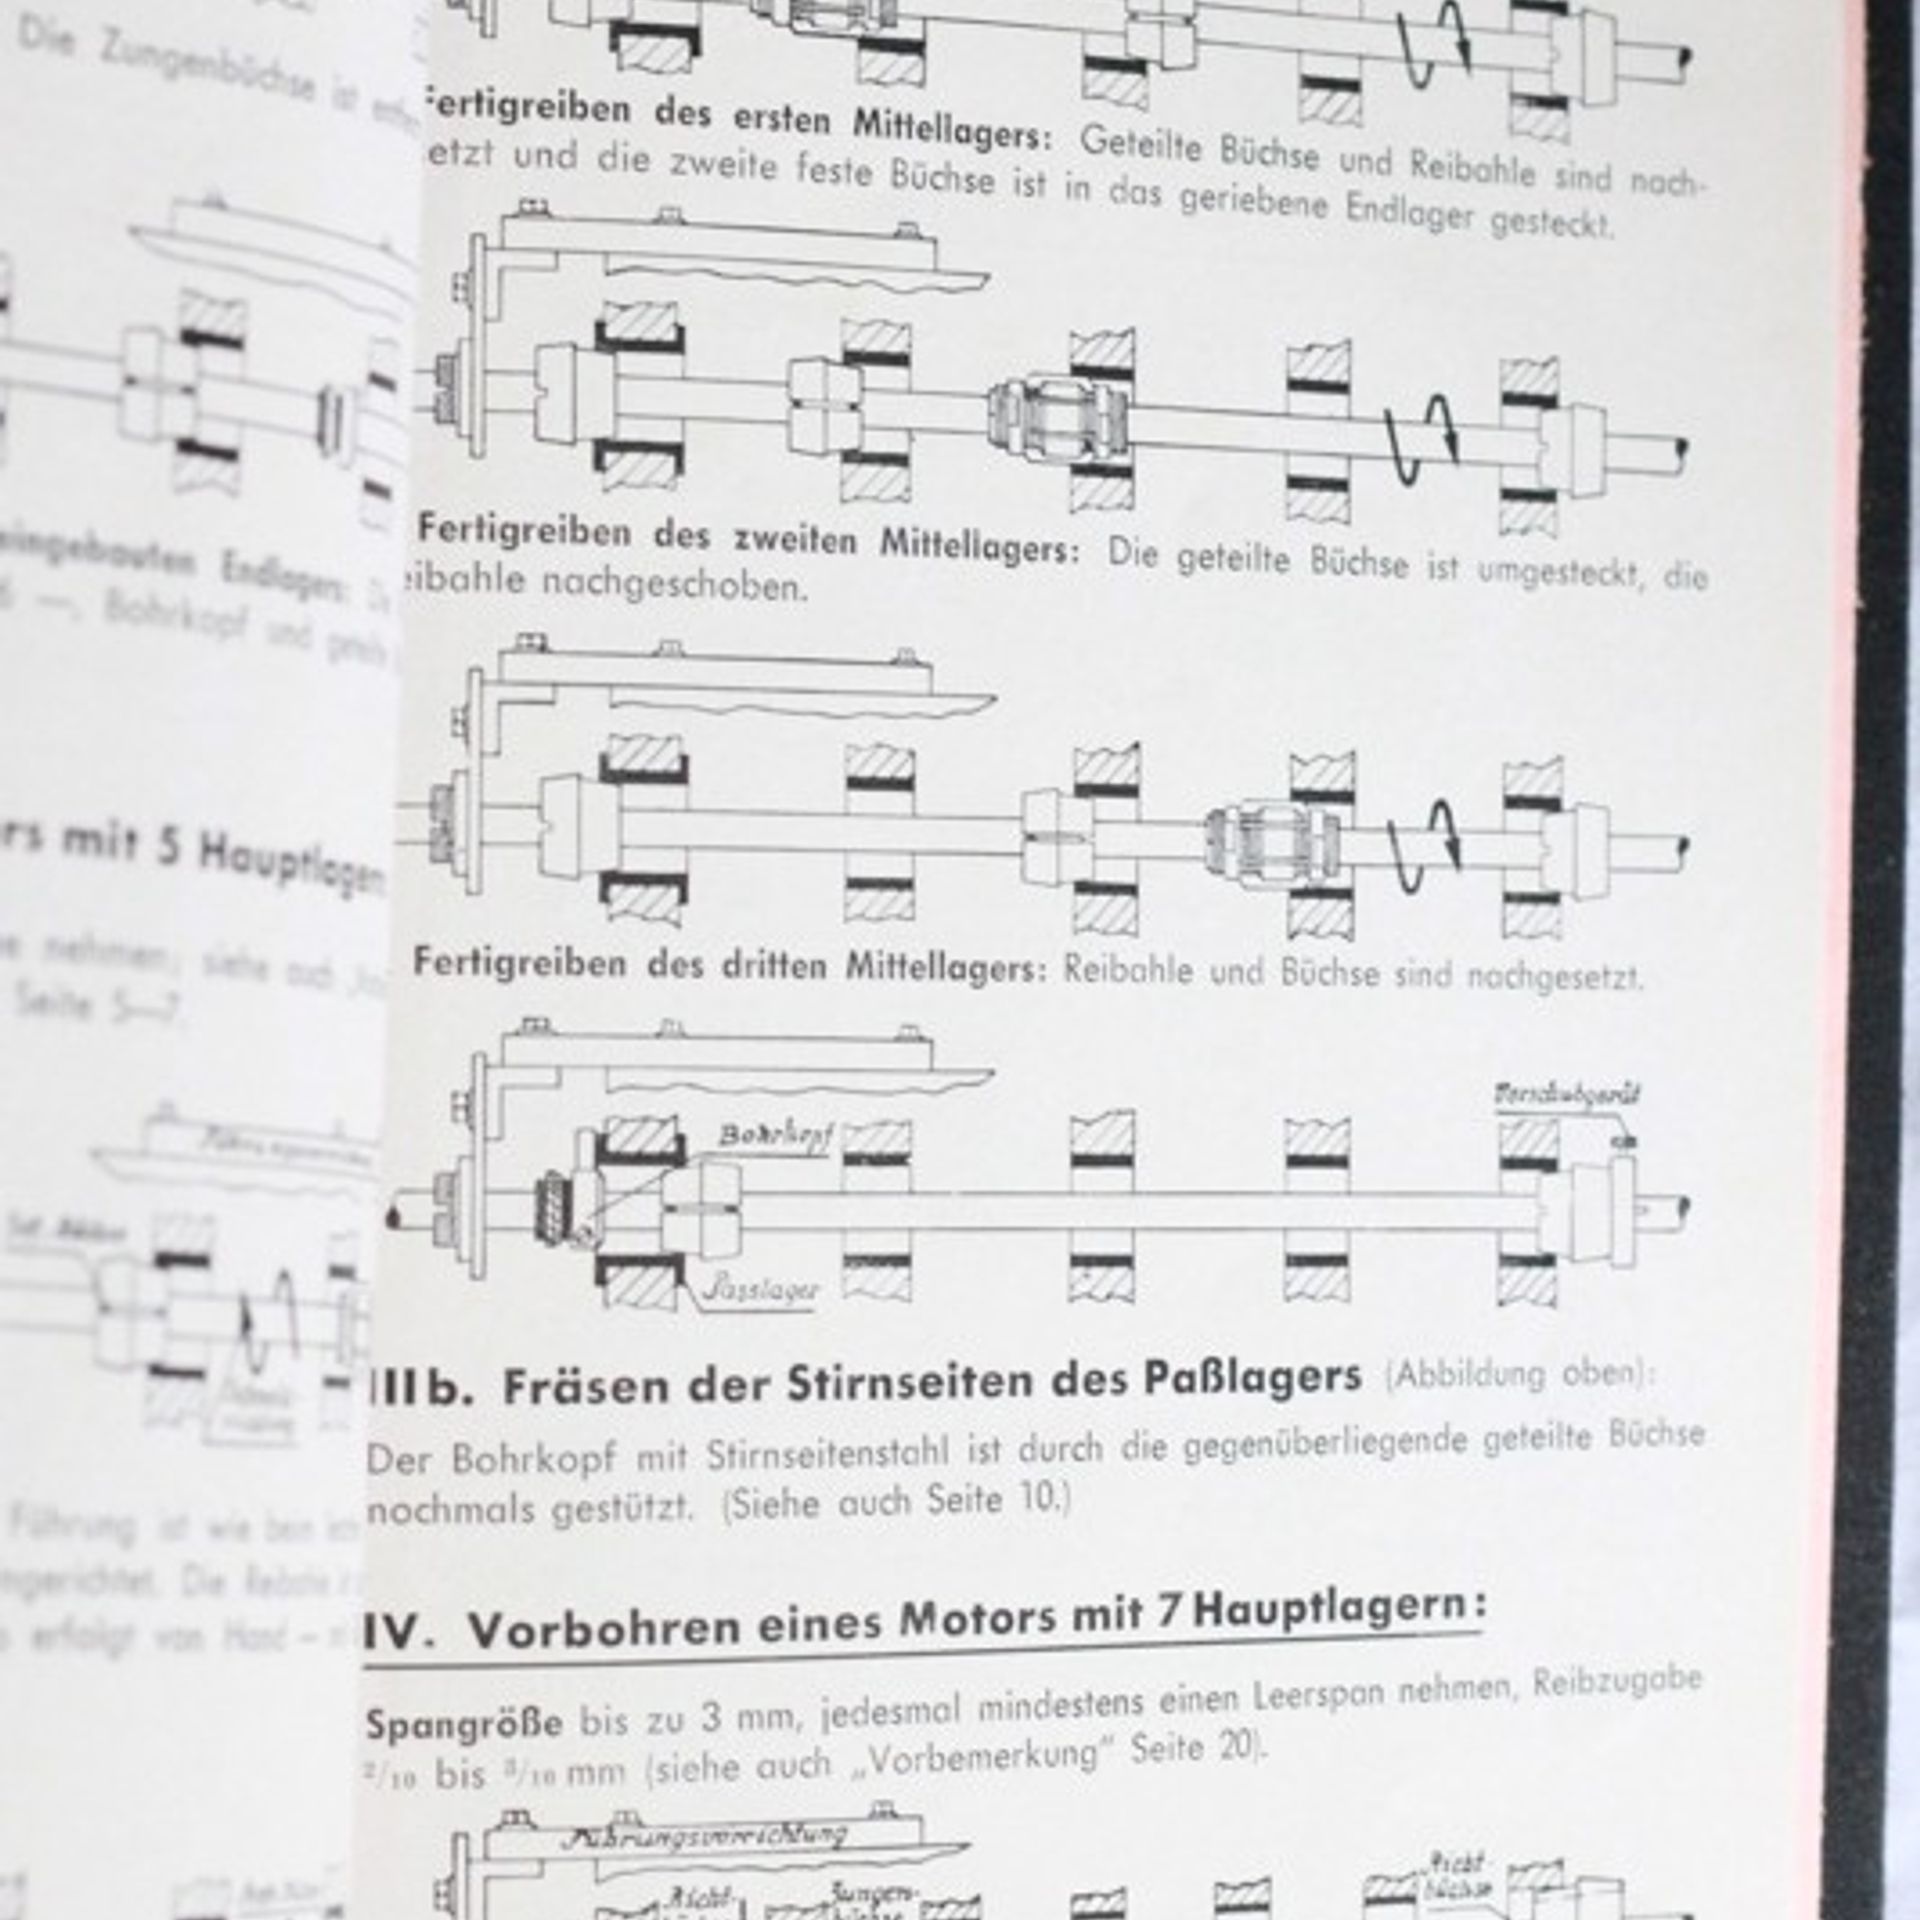 Die Zungenbüchse ist
eingebauten Endlagers:
Bohrkopf und
rs mit 5 Hauptlagern
nehmen; siehe auch
Seite 5—7.
Führung ist wie beim
ngerichtet. Die Reibahle
erfolgt von Hand –
Fertigreiben des ersten Mittellagers: Geteilte Büchse und Reibahle sind nach-
etzt und die zweite feste Büchse ist in das geriebene Endlager gesteckt.
Fertigreiben des zweiten Mittellagers: Die geteilte Büchse ist umgesteckt, die
eibahle nachgeschoben.
Fertigreiben des dritten Mittellagers: Reibahle und Büchse sind nachgesetzt.
Vorschubgerät
Bohrkopf
Passlager
III b. Fräsen der Stirnseiten des Paßlagers (Abbildung oben):
Der Bohrkopf mit Stirnseitenstahl ist durch die gegenüberliegende geteilte Büchse
nochmals gestützt. (Siehe auch Seite 10.)
IV. Vorbohren eines Motors mit 7 Hauptlagern:
Spangröße bis zu 3 mm, jedesmal mindestens einen Leerspan nehmen, Reibzugabe
²/₁₀ bis ³/₁₀ mm (siehe auch „Vorbemerkung" Seite 20).
Führungsvorrichtung
Richt-
Zungen-
Richt
büchse